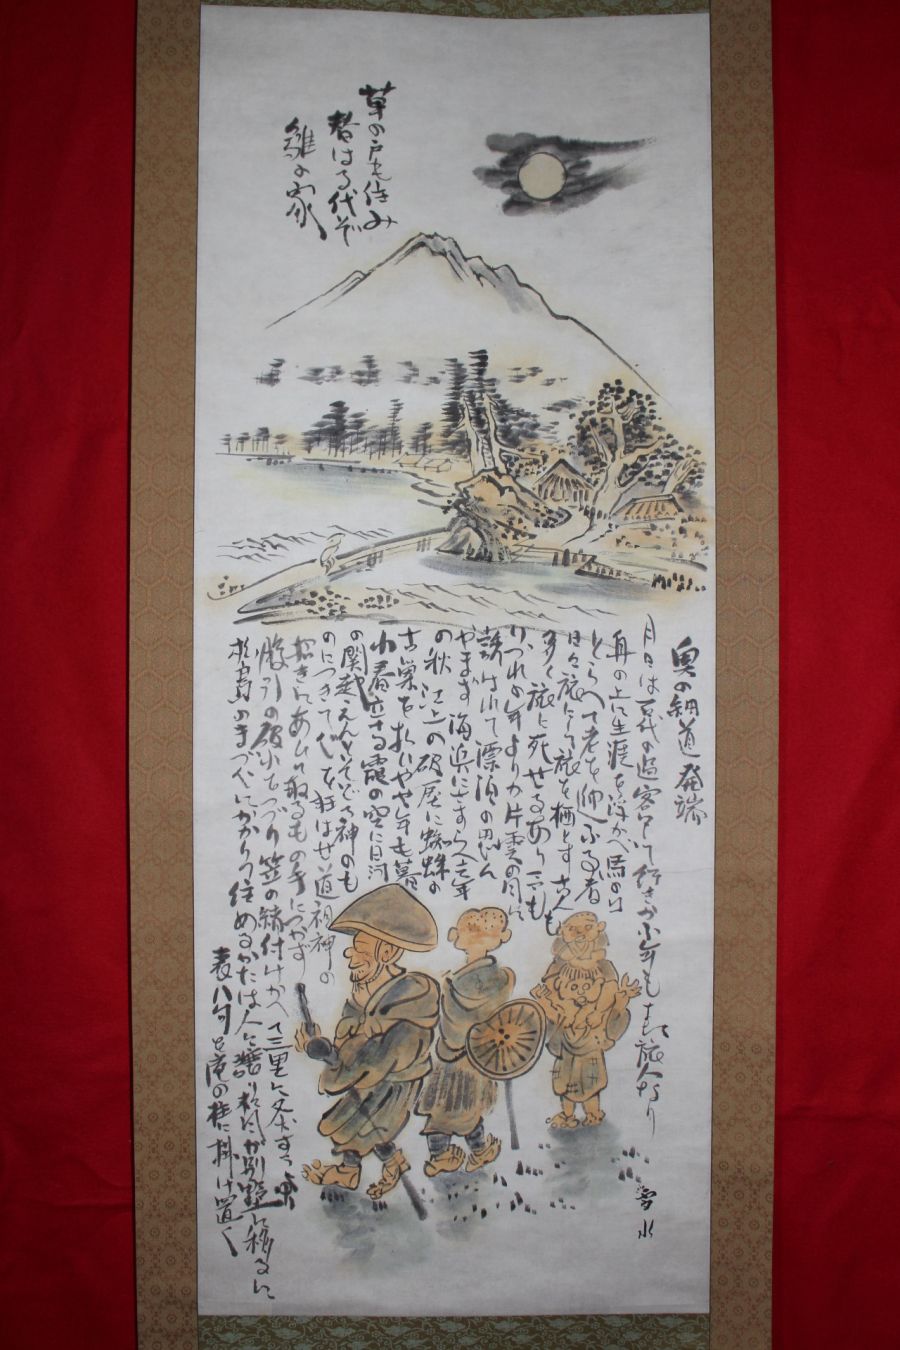 草の戸も住み
替はる代ぞ
雛の家
奥の細道 発端
月日は百代の過客にして行きかふ年もまた旅人なり
舟の上に生涯を浮かべ馬の口
とらへて老を迎ふる者
日々旅にして旅を栖とす古人も
多く旅に死せるあり予も
いづれの年よりか片雲の風に
誘はれて漂泊の思ひ
やまず海浜にさすらへ去年
の秋江上の破屋に蜘蛛の
古巣を払いやや年も暮
春立てる霞の空に白河
の関越えんとそぞろ神のも
のにつきて心を狂はせ道祖神の
招きにあひて取るもの手につかず
股引の破れをつづり笠の緒付けかへて三里に灸すうるより
松島の月まづ心にかかりて住めるかたは人に譲り杉風が別墅に移るに
表八句を庵の柱に掛け置く
雪水